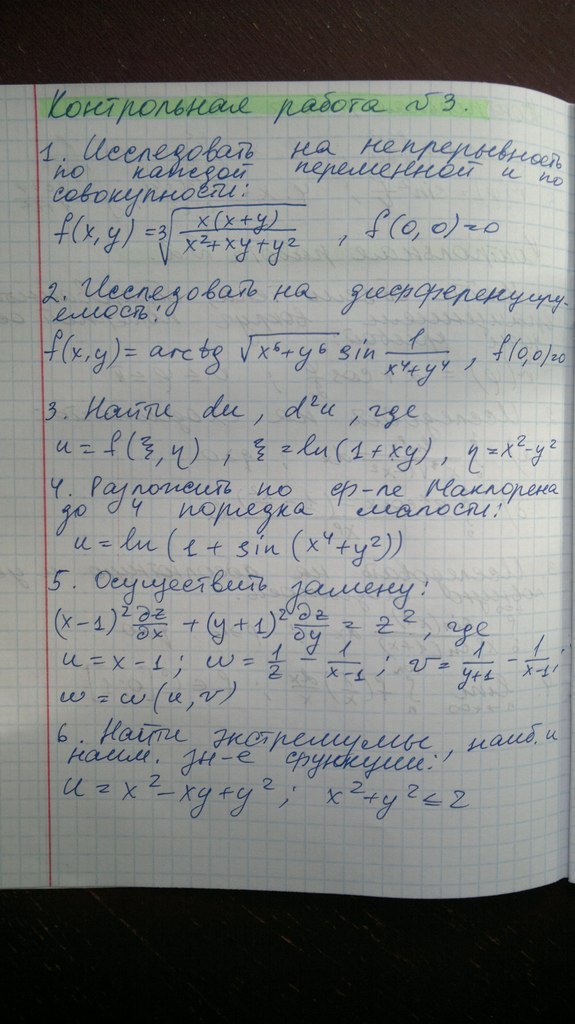 Контрольная работа №3.
1. Исследовать на непрерывность
по каждой переменной и по
совокупности:
f(x,y) = ∛(x(x+y)/(x²+xy+y²)), f(0,0)=0
2. Исследовать на дифференциру-
емость:
f(x,y) = arctg √(x⁶+y⁶) sin 1/(x⁴+y⁴), f(0,0)=0
3. Найти du, d²u, где
u = f(ξ,η), ξ = ln(1+xy), η = x²-y²
4. Разложить по ф-ле Маклорена
до 4 порядка малости:
u = ln(1 + sin(x⁴+y²))
5. Осуществить замену:
(x-1)² ∂z/∂x + (y+1)² ∂z/∂y = z², где
u = x-1; w = 1/z - 1/(x-1); v = 1/(y+1) - 1/(x-1);
w = w(u,v)
6. Найти экстремумы, наиб. и
наим. зн-е функции:
u = x²-xy+y²; x²+y² ≤ 2